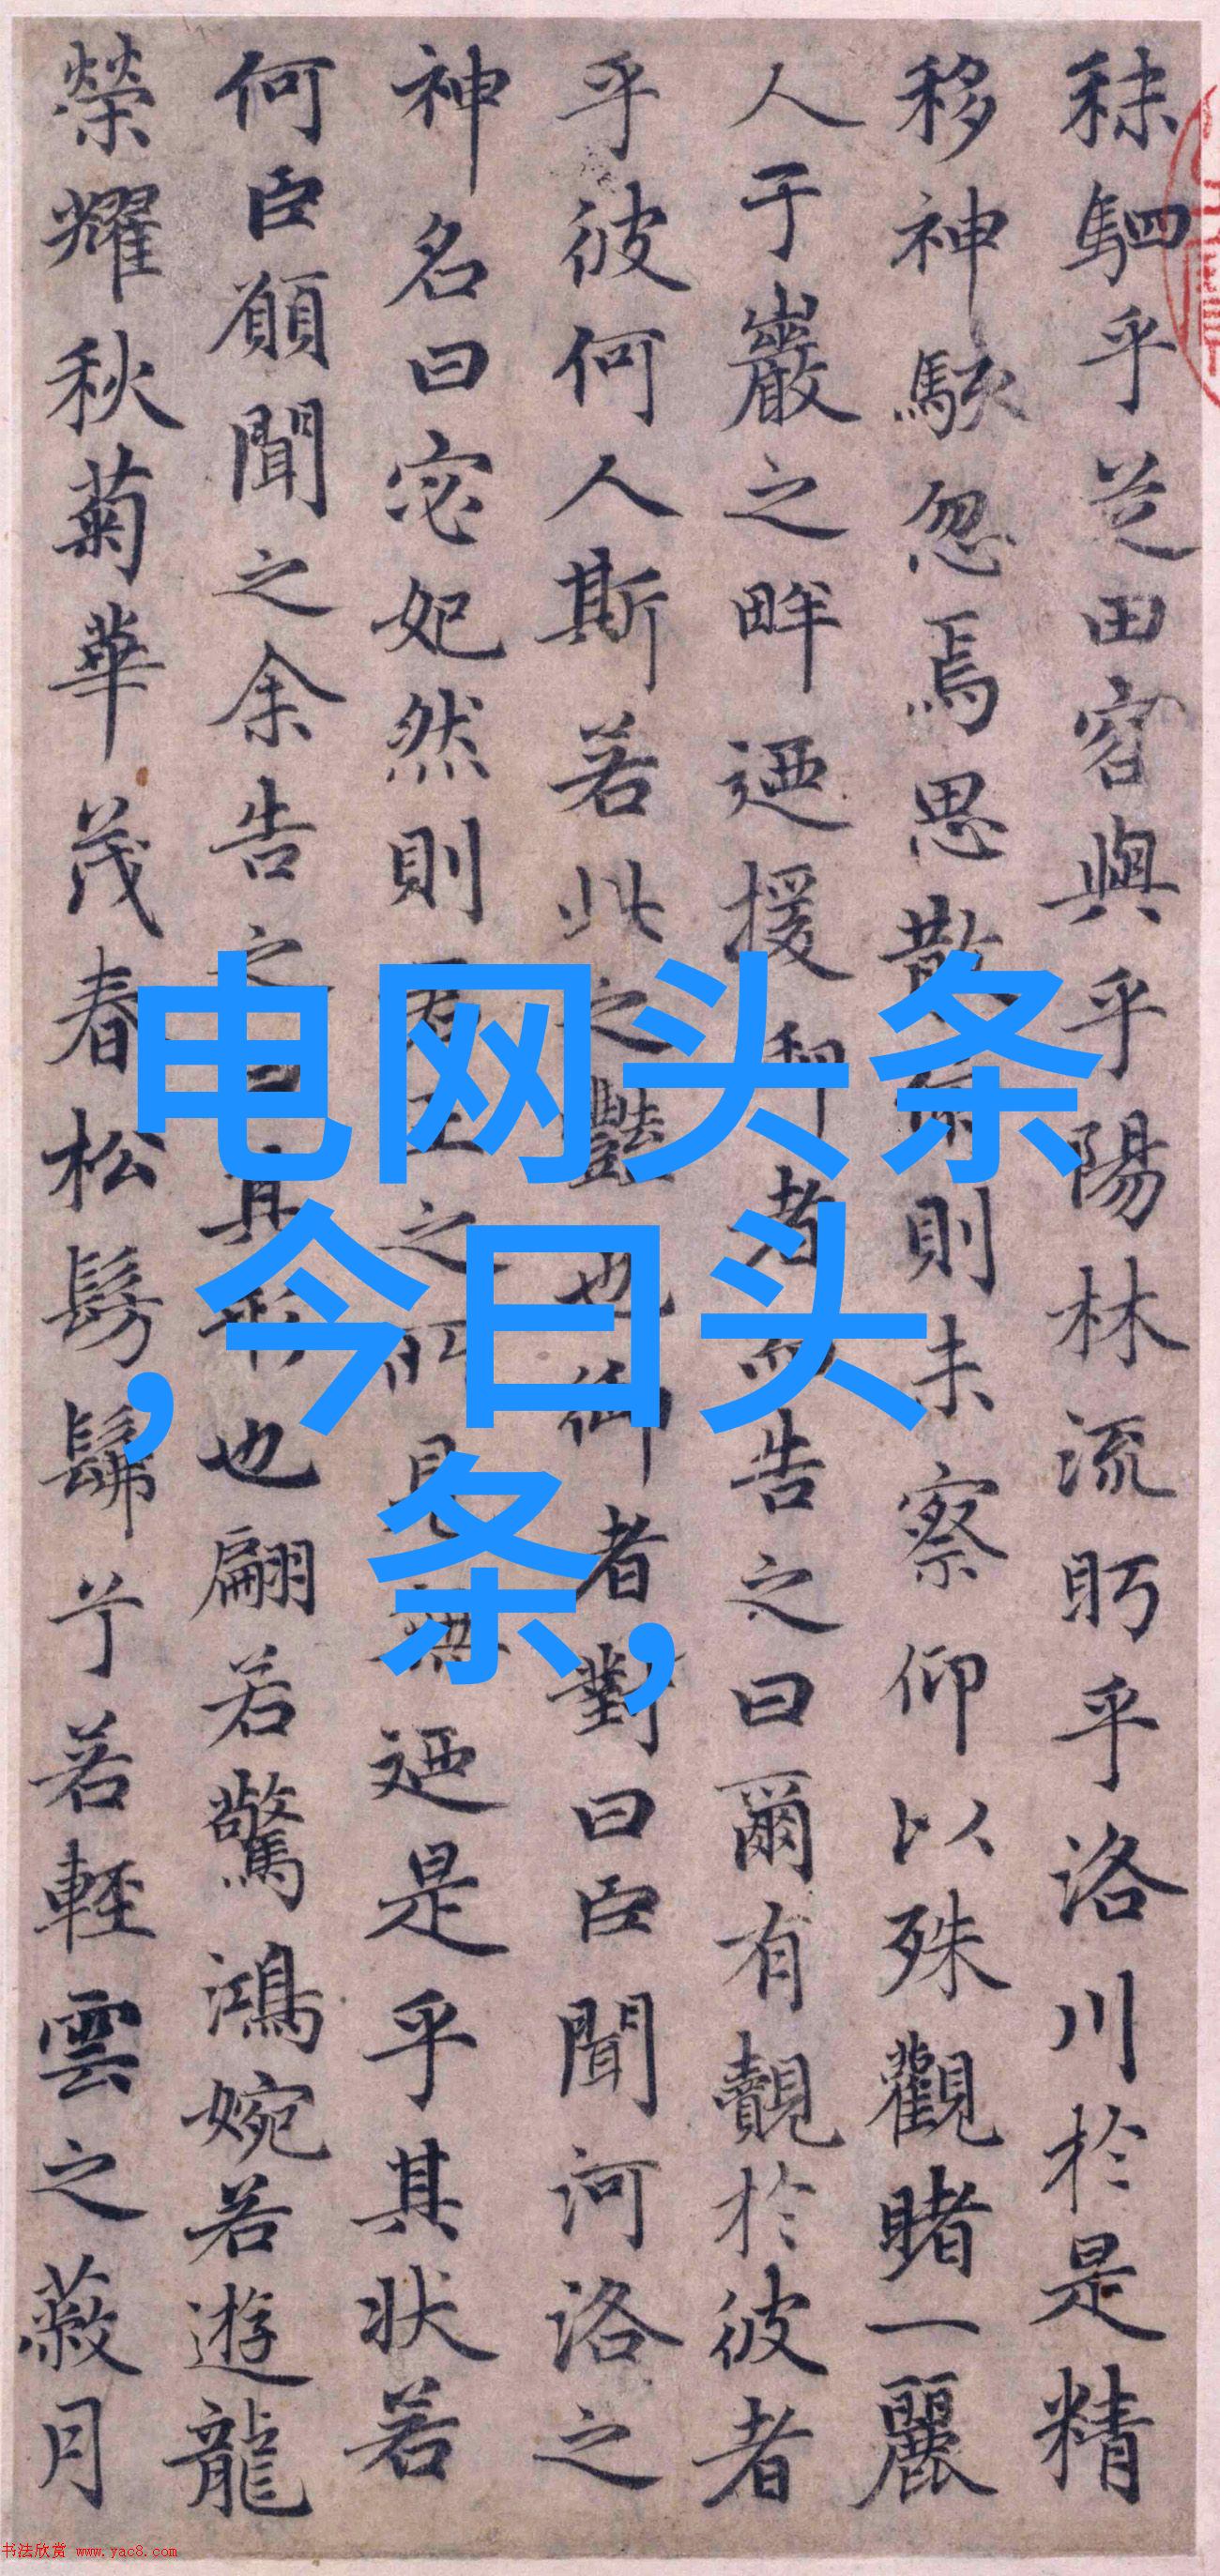 秣駟乎芝田容與乎陽林流眄乎洛川於是精
移神駭忽焉思散俯則未察仰以殊觀睹一麗
人于巖之畔迺援御者而告之曰爾有覿於彼者
乎彼何人斯若此之豔也御者對曰臣聞河洛之
神名曰宓妃然則君王之所見無迺是乎其狀若
何臣願聞之余告之曰其形也翩若驚鴻婉若遊龍
榮耀秋菊華茂春松髣髴兮若輕雲之蔽月
电网头条
,今日头
条,
书法欣赏 www.yac8.com